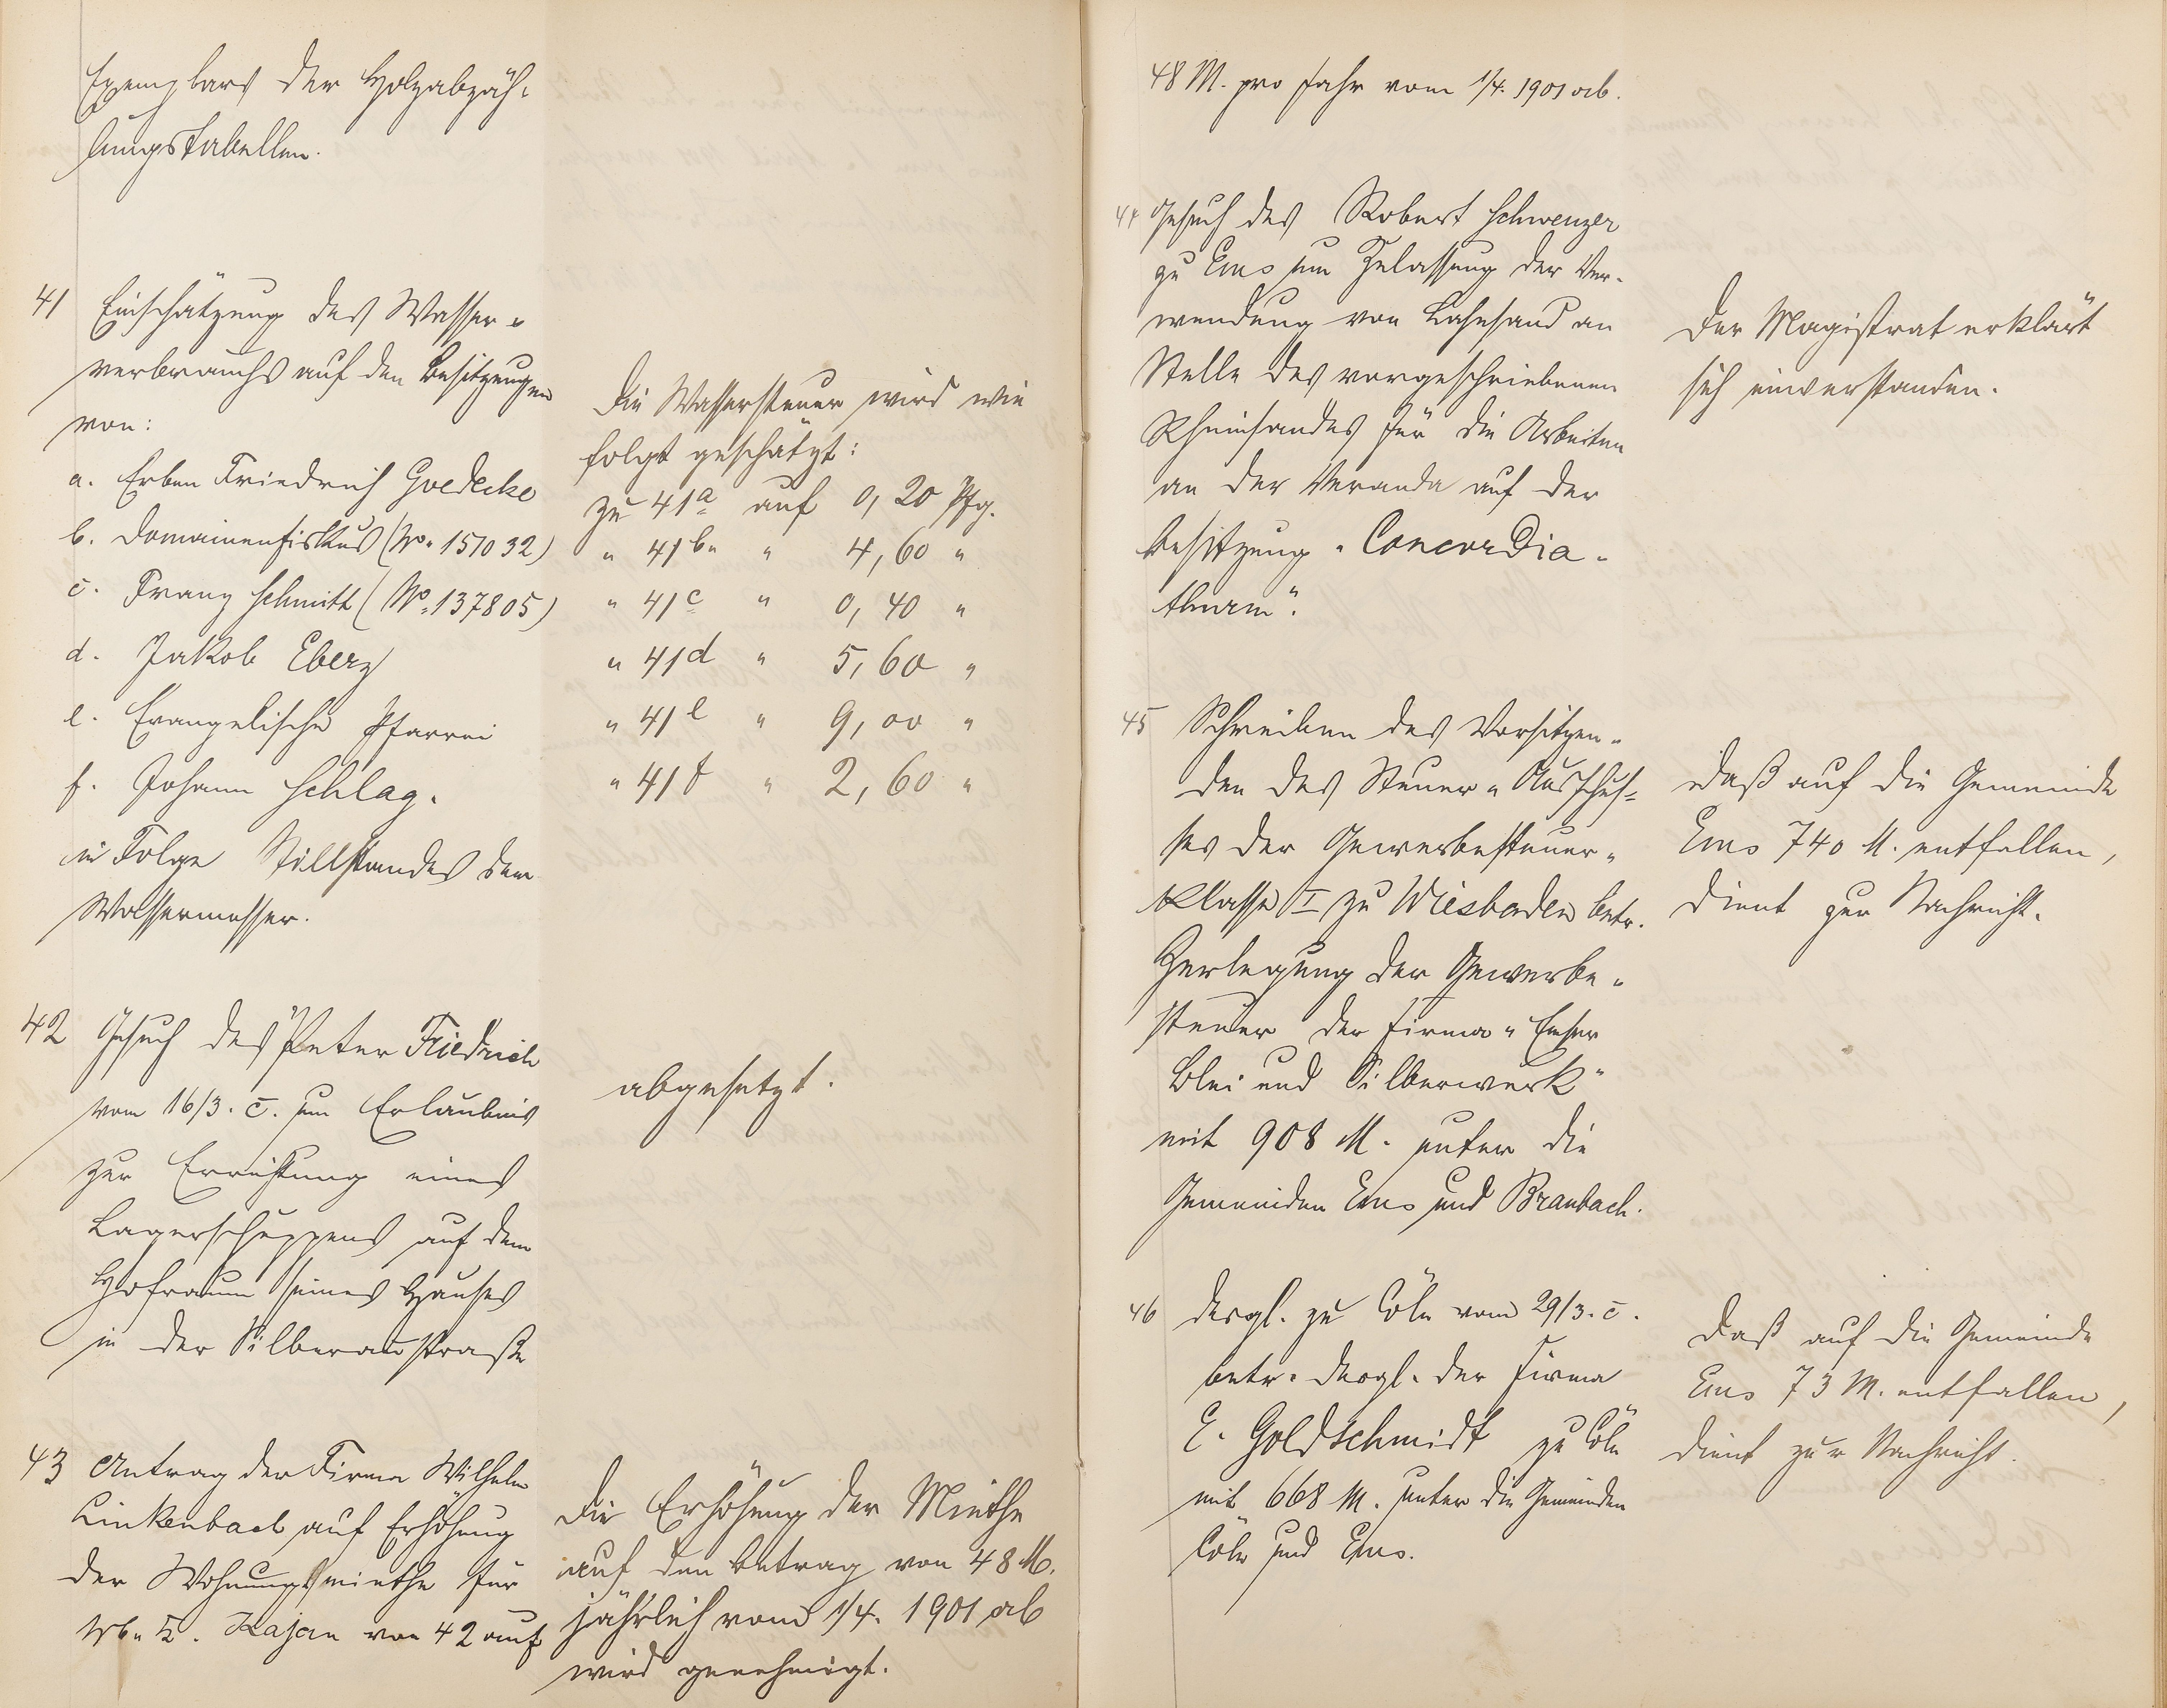 Exemplars der Holzabzäh-
lungstabellen.
41 Einschätzung des Wasser-
verbrauchs auf den Besitzungen
von:
a. Erben Friedrich Goedecke
b. Domainenfiskus (No. 151032)
c. Franz Schmitt (No. 137805)
d. Jakob Eberz
e. Evangelische Pfarrei
f. Johann Schlag.
in Folge Stillstandes der
Wassermesser.
Die Wassersteuer wird wie
folgt geschätzt:
zu 41a auf 0,20 Pfg.
" 41b " 4,60 "
" 41c " 0,40 "
" 41d " 5,60 "
" 41e " 9,00 "
" 41f " 2,60 "
42 Gesuch des Peter Friedrich
vom 16/3. c. um Erlaubnis
zur Errichtung eines
Lagerschuppens auf dem
Hofraum seines Hauses
in der Silberaustraße
abgesetzt.
43 Antrag der Firma Wilhelm
Linkenbach auf Erhöhung
der Wohnungsmiethe für
Kajan von 42 auf
Die Erhöhung der Miethe
auf den Betrag von 48 M.
jährlich vom 1/4. 1901 ab
wird genehmigt.
48 M. pro Jahr vom 1/4. 1901 ab.
44 Gesuch des Robert Schwenzer
zu Ems um Zulassung der Ver-
wendung von Lahnsand an
Stelle des vorgeschriebenen
Rheinsandes für die Arbeiten
an der Veranda auf der
Besitzung "Concordia-
thurm".
Der Magistrat erklärt
sich einverstanden.
45 Schreiben des Vorsitzen-
den des Steuer-Ausschus-
ses der Gewerbesteuer-
klasse I zu Wiesbaden betr.
Zerlegung der Gewerbe-
steuer der Firma "Emser
Blei und Silberwerk"
mit 908 M. unter die
Gemeinden Ems und Braubach.
daß auf die Gemeinde
Ems 740 M. entfallen,
dient zur Nachricht.
46 desgl. zu Cöln vom 29/3. c.
betr. desgl. der Firma
E. Goldschmidt zu Cöln
mit 668 M. unter die Gemeinden
Cöln und Ems.
daß auf die Gemeinde
Ems 73 M. entfallen,
dient zur Nachricht.